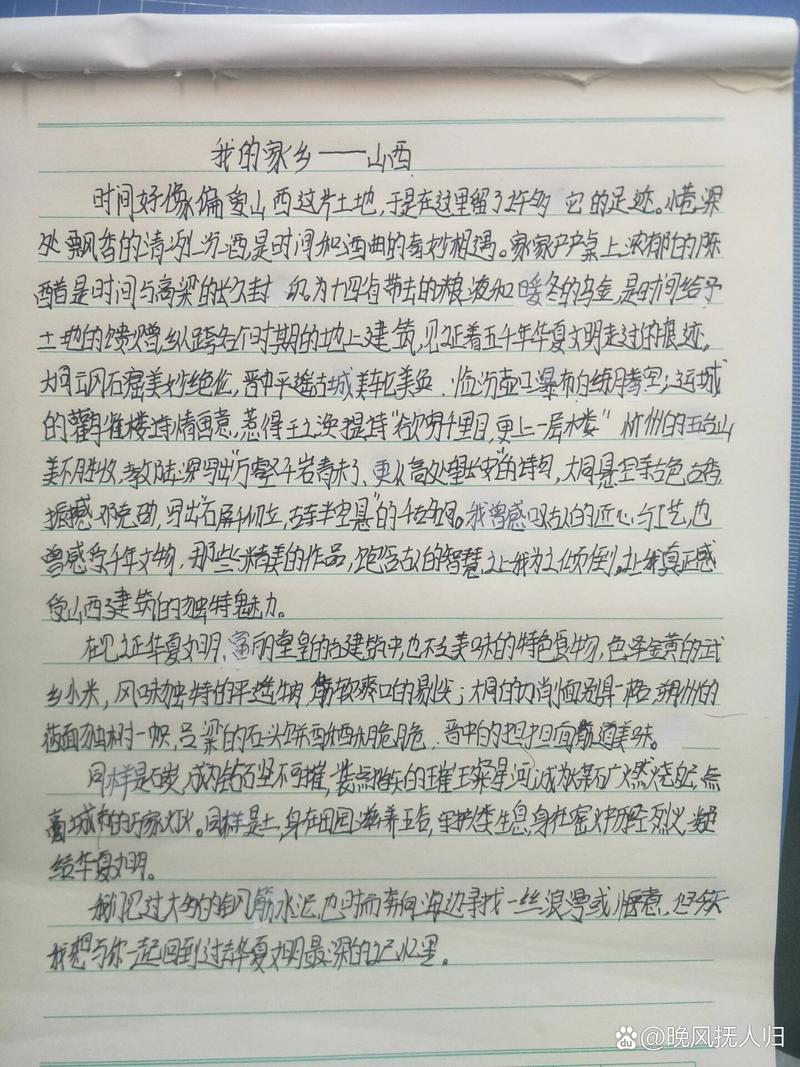 我的家乡——山西
时间好像偏爱山西这片土地,于是在这里留了许多 它的足迹。巷深
处飘香的清冽汾酒,是时间和酒曲的奇妙相遇。家家户户桌上浓郁的陈
醋是时间与高粱的长久封 印。为十四省带去的粮液和暖冬的乌金,是时间给予
土地的馈赠,纵跨各个时期的地上建筑,见证着五千年华夏文明走过的痕迹。
大同云冈石窟美妙绝伦,晋中平遥古城美轮美奂,临汾壶口瀑布的绕月 空;运城
的鹳雀楼诗情画意,惹得王之涣提诗"欲穷千里目,更上一层楼" 忻州的五台山
美不胜收,教陆深写出"万壑千岩青未了,更从高处望长安"的诗句,大同悬空寺古色古香
振撼邓克劭,写出"石屏千仞立,古寺半空悬"的千古 句。我曾感叹古人的匠心与工艺,也
曾感受千年文物,那些精美的作品,饱含古人的智慧,让我为之倾倒。让我真正感
受山西建筑的独特魅力。
在见证华夏文明,富丽堂皇的古建筑中,也不乏美味的特色食物,色泽金黄的武
乡小米,风味独特的平遥牛肉,筋软爽口的剔尖;大同的刀削面别具一格;朔州的
莜面独树一帜,吕梁的石头饼酥酥脆脆,晋中的担担面 道美味。
同样是石炭,成为钻石坚不可摧,装点指尖的璀璨星河,成为煤矿燃烧自己,点
亮城市的万家灯火。同样是土,身在田园滋养五谷,呵护人类生息,身在窑炉历经烈火,凝
结华夏文明。
我们见过太多的钢筋水泥,也时而奔向海边寻找一丝浪漫或惬意,但今天
我想与你一起回到过去华夏文明最深的记忆里。
晚风抚人归